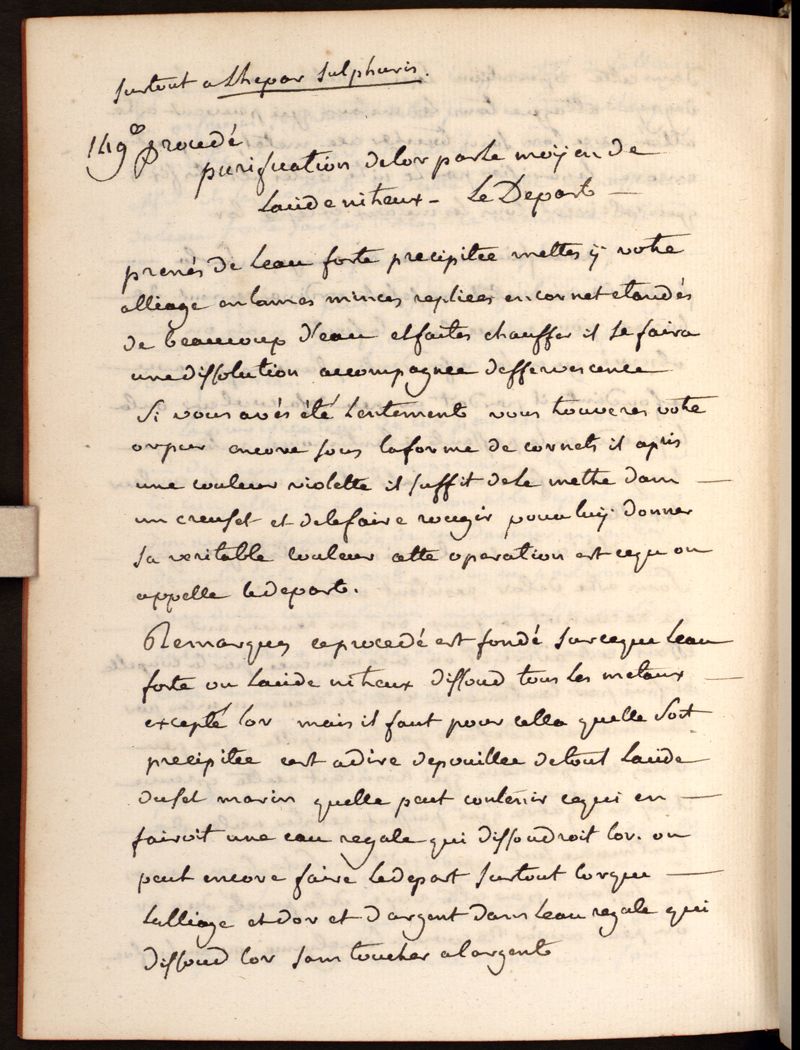 surtout a lhepar sulphuris.
149e procedé
purification delor parle moÿen de
lacide nitreux – Le Depart –
prenés de leau forte precipitée mettes ÿ votre
alliage en lames minces repliées en cornet etandés
de beaucoup d'eau etfaites chauffer il se faira
une dissolution accompagnée deffervescence
Si vous avés été lentement vous trouveres votre
orpur encore sous laforme de cornets il apris
une couleur violette il suffit dele mettre dans –
un creuset et delefaire rougir pour luÿ donner
sa veritable couleur cette operation est cequ on
appelle ledepart.
Remarques ceprocedé est fondé surceque leau
forte ou lacide nitreux dissoud tous les metaux –
excepté lor mais il faut pour cella quelle soit
precipitée cest adire depouillee detout lacide
dusel marin quelle peut contenir cequi en –
fairoit une eau regale qui dissoudroit lor. on
peut encore faire ledepart surtout lorque –
lalliage estdor et dargent dans leau regale qui
dissoud lor sans toucher alargent